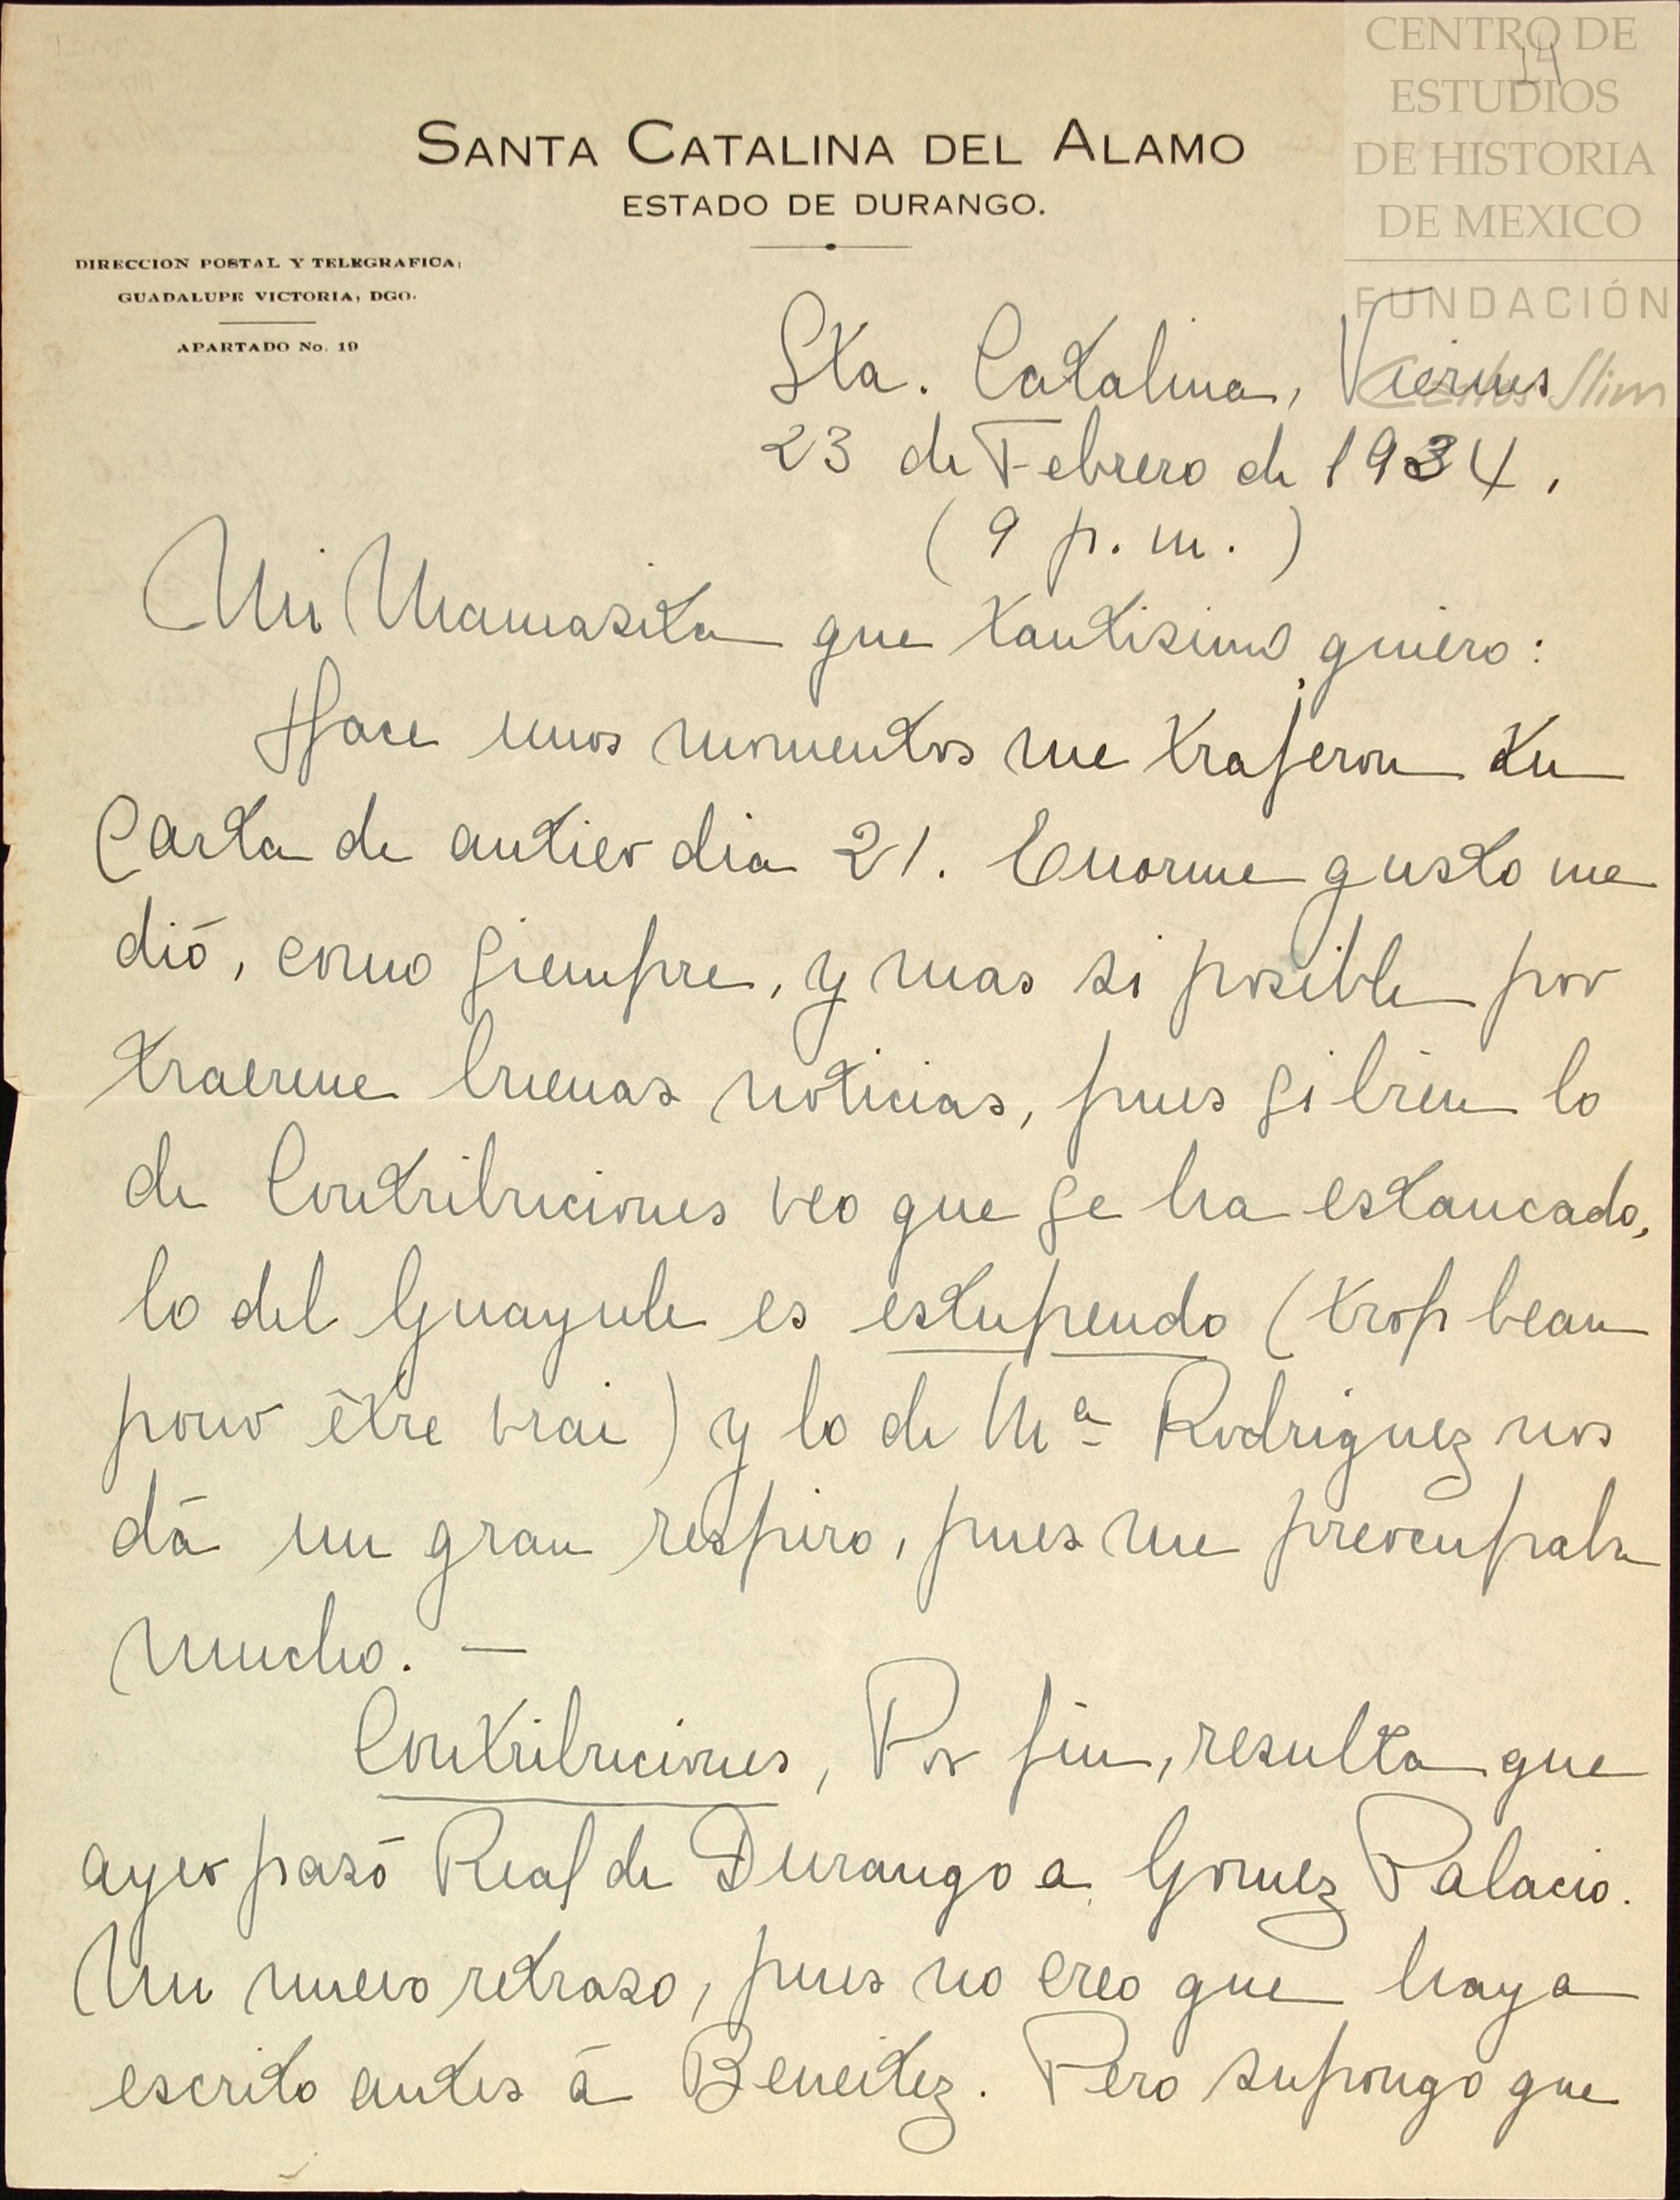 CENTRO DE
ESTUDIOS
DE HISTORIA
DE MEXICO
FUNDACIÓN
Carlos Slim
14
SANTA CATALINA DEL ALAMO
ESTADO DE DURANGO.
DIRECCION POSTAL Y TELEGRAFICA;
GUADALUPE VICTORIA, DGO.
APARTADO No. 19
Sta. Catalina, Viernes
23 de Febrero de 1934.
(9 p.m.)
Mi Mamasita que tantisimo quiero:
Hace unos momentos me trajeron tu
Carta de antier dia 21. Enorme gusto me
dió, como siempre, y mas si posible por
traerme buenas noticias, pues si bien lo
de Contribuciones veo que se ha estancado,
lo del Guayule es estupendo (trop beau
pour être vrai) y lo de Mª Rodriguez nos
dá un gran respiro, pues me preocupaba
mucho. —
Contribuciones, Por fin, resulta que
ayer pasó Real de Durango a Gomez Palacio.
Un nuevo retraso, pues no creo que haya
escrito antes á Beneitez. Pero supongo que